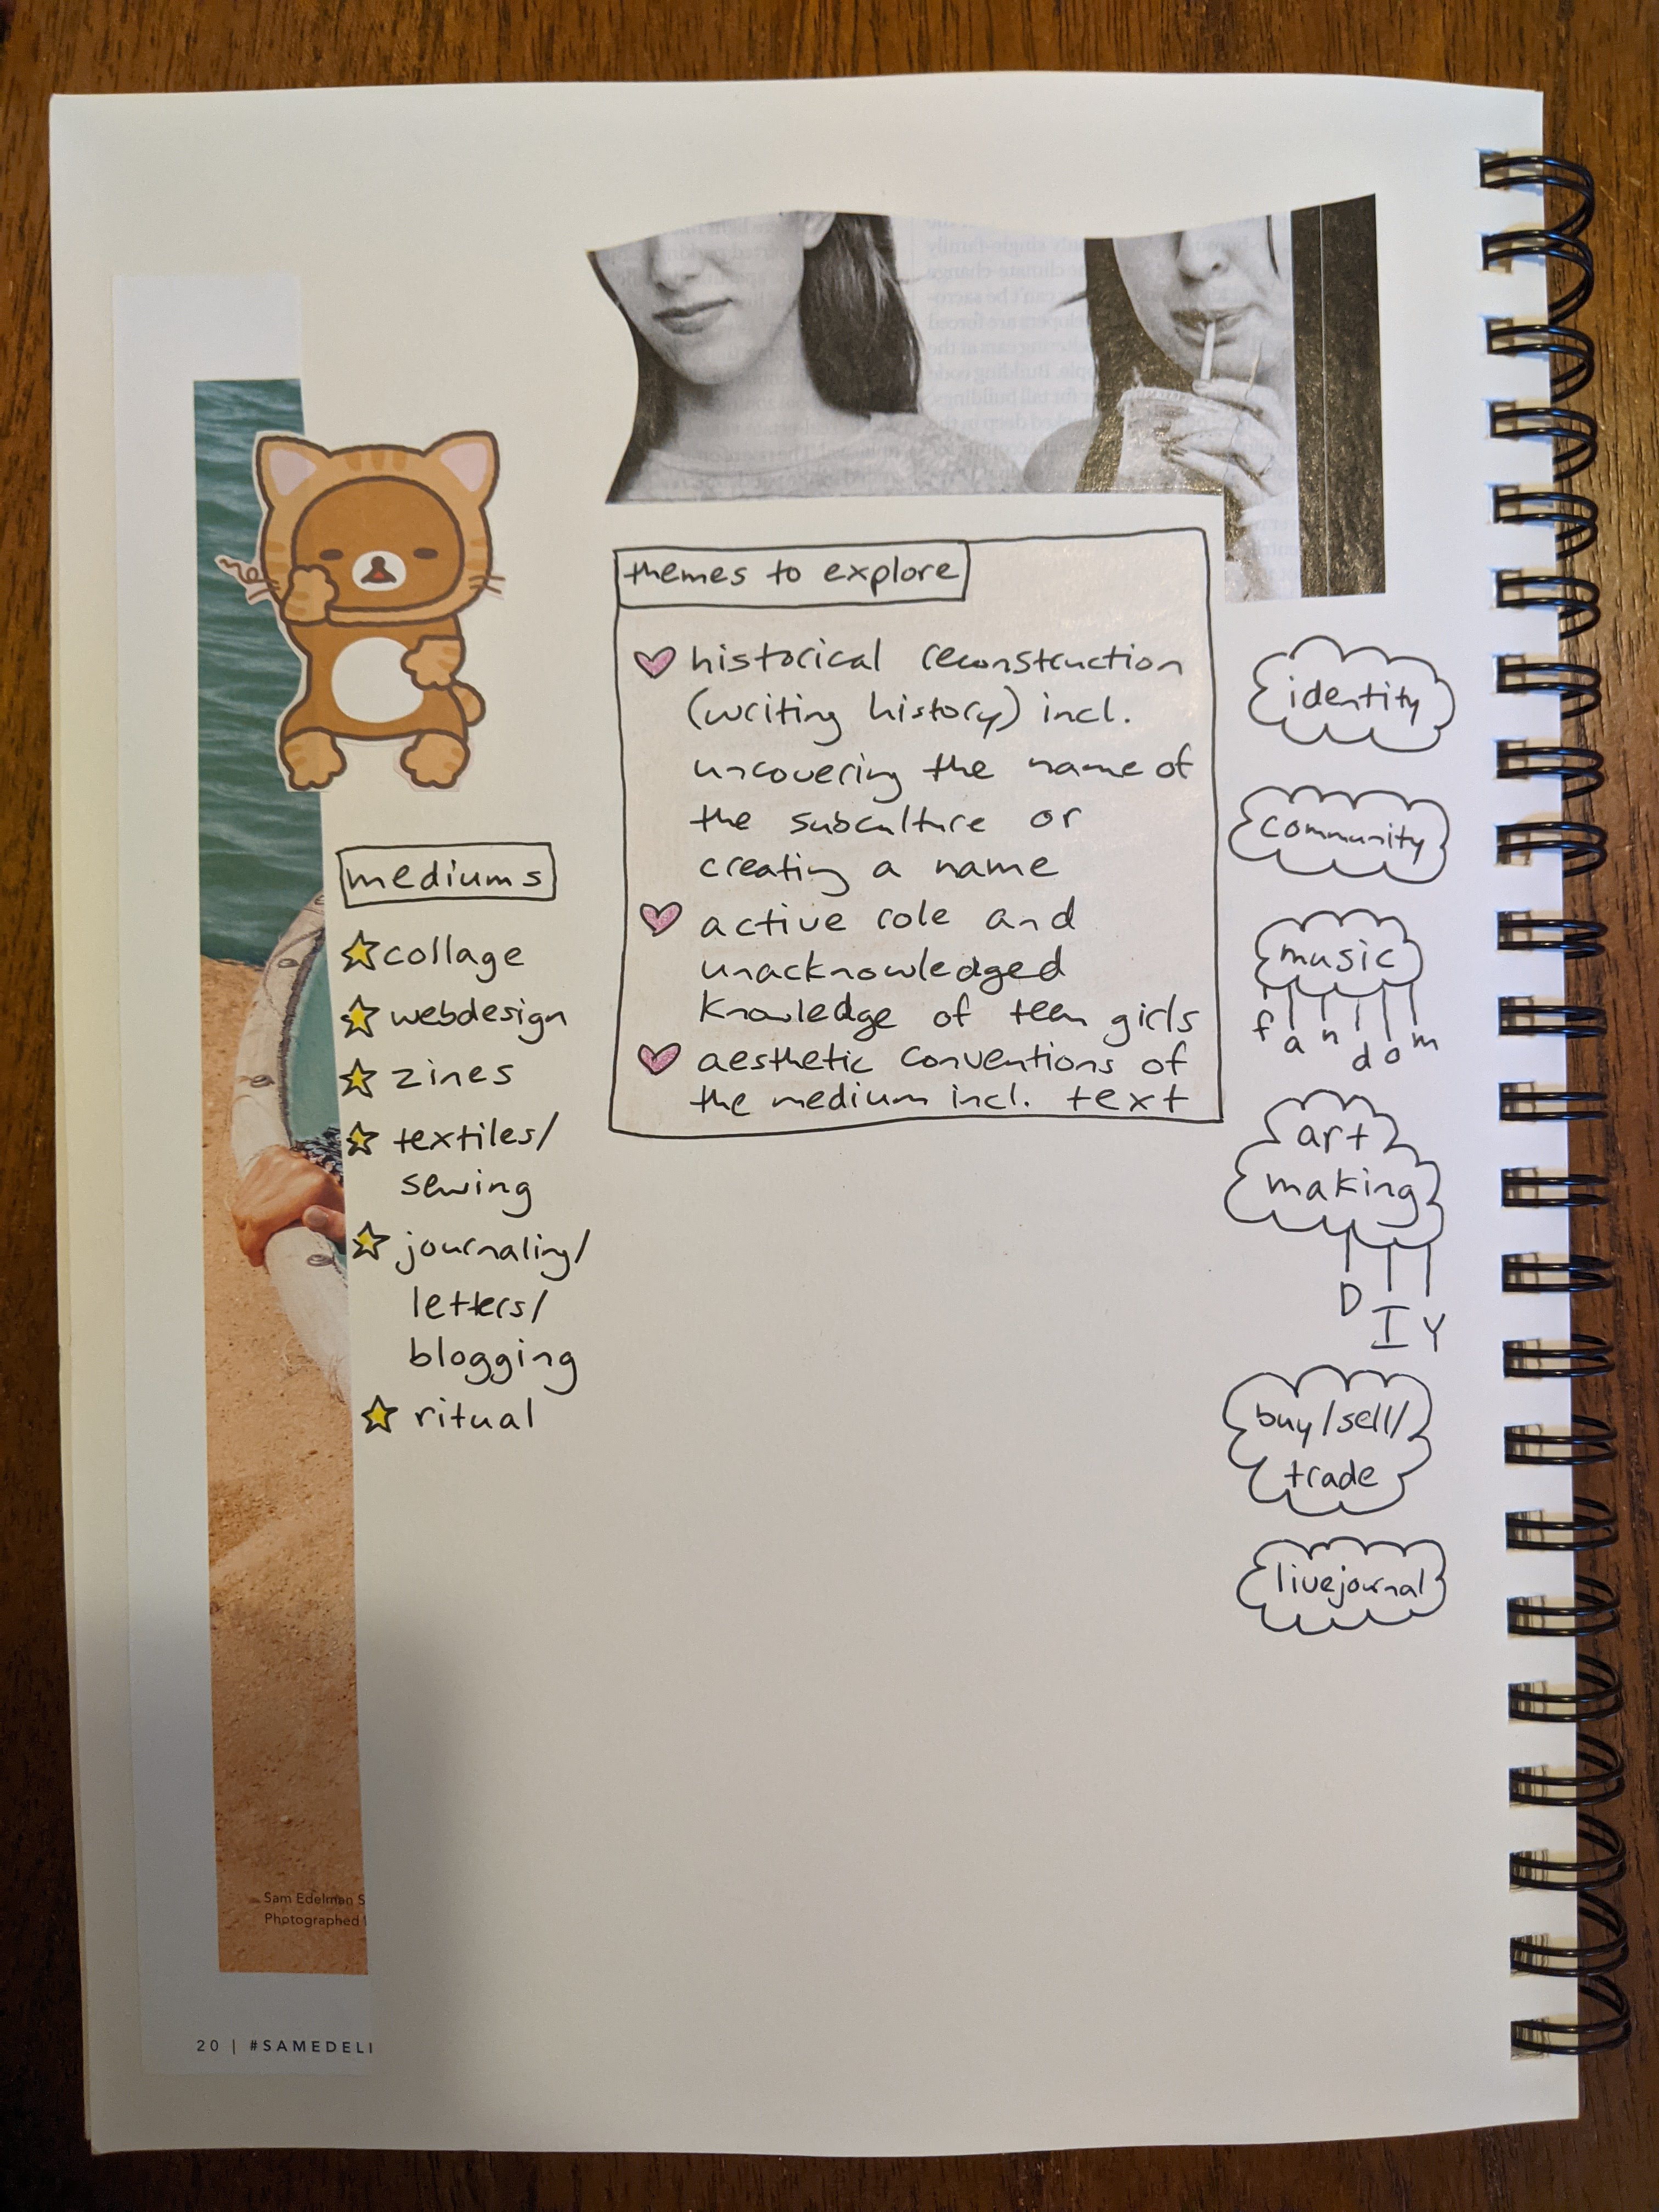 themes to explore
historical reconstruction
(writing history) incl.
uncovering the name of
the subculture or
creating a name
active role and
unacknowledged
knowledge of teen girls
aesthetic conventions of
the medium incl. text
mediums
collage
webdesign
zines
textiles/
sewing
journaling/
letters/
blogging
ritual
identity
community
music
fandom
art
making
DIY
buy/sell/
trade
livejournal
Sam Edelman S
Photographed
20 | #SAMEDEL